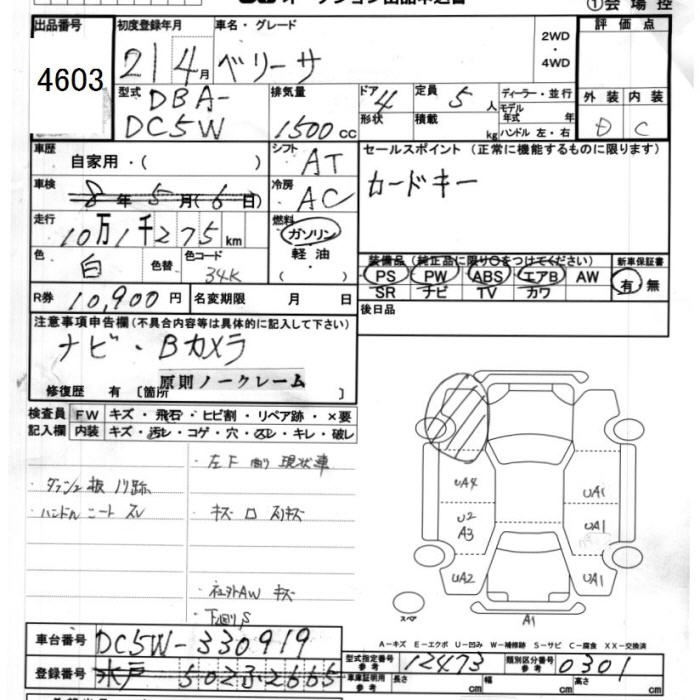 オークション出品申込書
①会場控
出品番号 4603
初度登録年月 21 4月
車名・グレード ベリーサ
2WD・4WD
評価点
外装 内装
D C
型式 DBA-DC5W
排気量 1500cc
ドア 4
形状
定員 5人
積載 kg
ディーラー・並行
モデル年式 年
ハンドル 左・右
車歴 自家用・( )
シフト AT
セールスポイント (正常に機能するものに限ります)
カードキー
車検 8年5月(6日)
冷房 AC
走行 10万1千275km
燃料 ガソリン
軽油・( )
色 白
色替
色コード 34K
装備品 (純正品に限り○をつけてください)
PS PW ABS エアB AW
SR ナビ TV カワ
新車保証書 有・無
R券 10,900円
名変期限 月 日
後日品
注意事項申告欄 (不具合内容等は具体的に記入して下さい)
ナビ・Bカメラ
原則ノークレーム
修復歴 有 [箇所 ]
検査員記入欄
FW キズ・飛石・ヒビ割・リペア跡・×要
内装 キズ・汚レ・コゲ・穴・スレ・キレ・破レ
・左下廻り 現状車
・ダッシュ板 ノリ跡
・ハンドル シート スレ
・キズ ロ スリキズ
・社外AW キズ
・下廻りS
UA4
U2
A3
UA2
UA1
UA1
UA1
A1
スペア
A-キズ E-エクボ U-凹み W-補修跡 S-サビ C-腐食 XX-交換済
車台番号 DC5W-330919
登録番号 水戸 502ふ2665
型式指定番号 参考 12473
類別区分番号 参考 0301
車庫証明用 参考 長さ cm 幅 cm 高さ cm